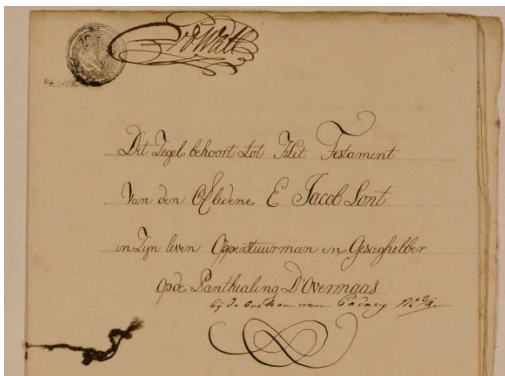 Dit Zegel behoort tot Het Testament
Van den Overledene E Jacob Lont
in Zijn leven Opperstuurman en Gesaghebber
op de Panthialing D'Overmaas
bij de boeken van Padang